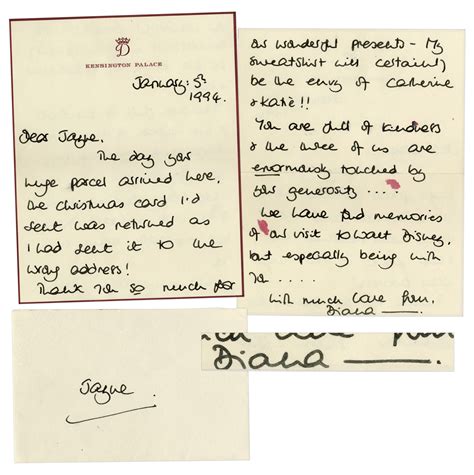 D
KENSINGTON PALACE
January: 5th
1994.
Dear Jayne,
The day your
huge parcel arrived here,
the Christmas card I'd
sent was returned as
I had sent it to the
wrong address!
Thank you so much for
our wonderful presents - My
sweatshirt will certainly
be the envy of Catherine
& Katie!!
You are full of kindness
& the three of us are
enormously touched by
your generosity ....
We have fond memories
of our visit to Walt Disney,
but especially being with
you ....
with much love from,
Diana
much love from
Diana
Jayne